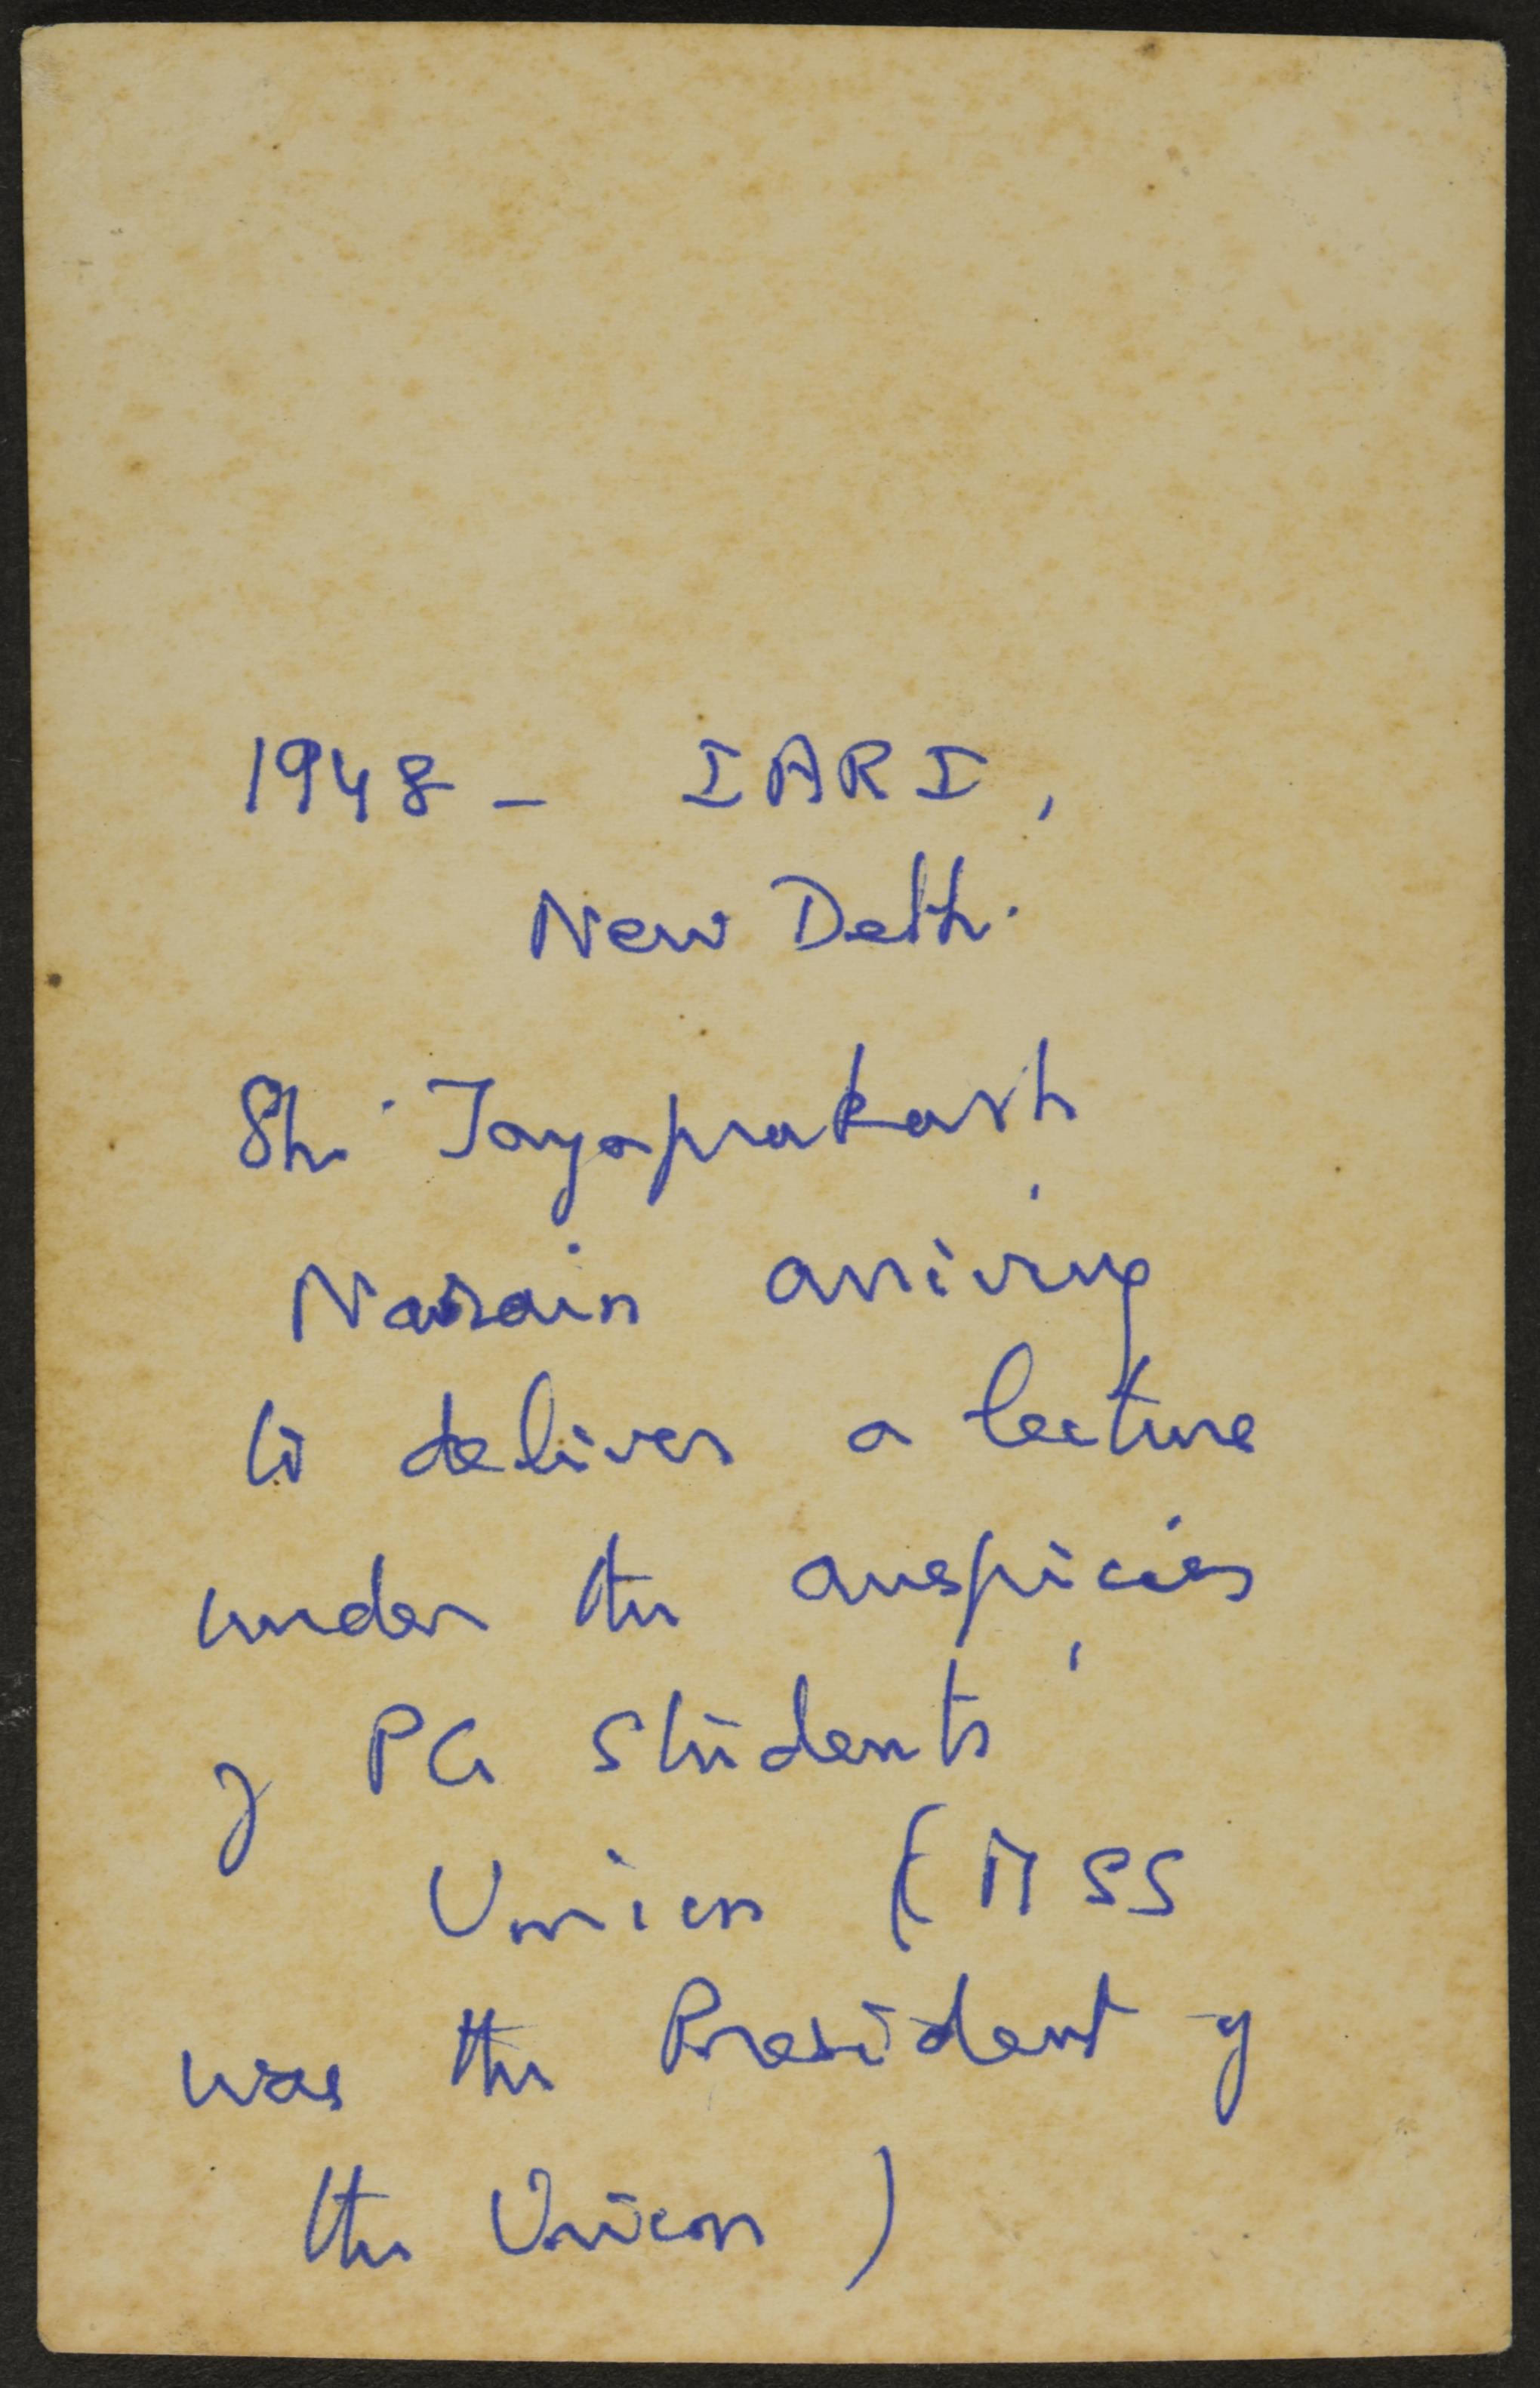 1948 - IARI,
New Delhi
Shri Jayaprakash
Narain arriving
to deliver a lecture
under the auspicies
of PG Students'
Union (MSS
was the President of
the Union)